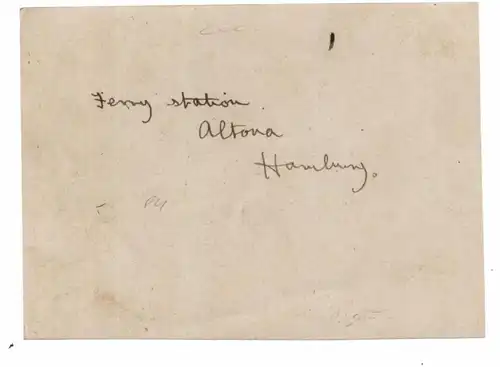 Ferry station.
Altona
Hamburg.
P4